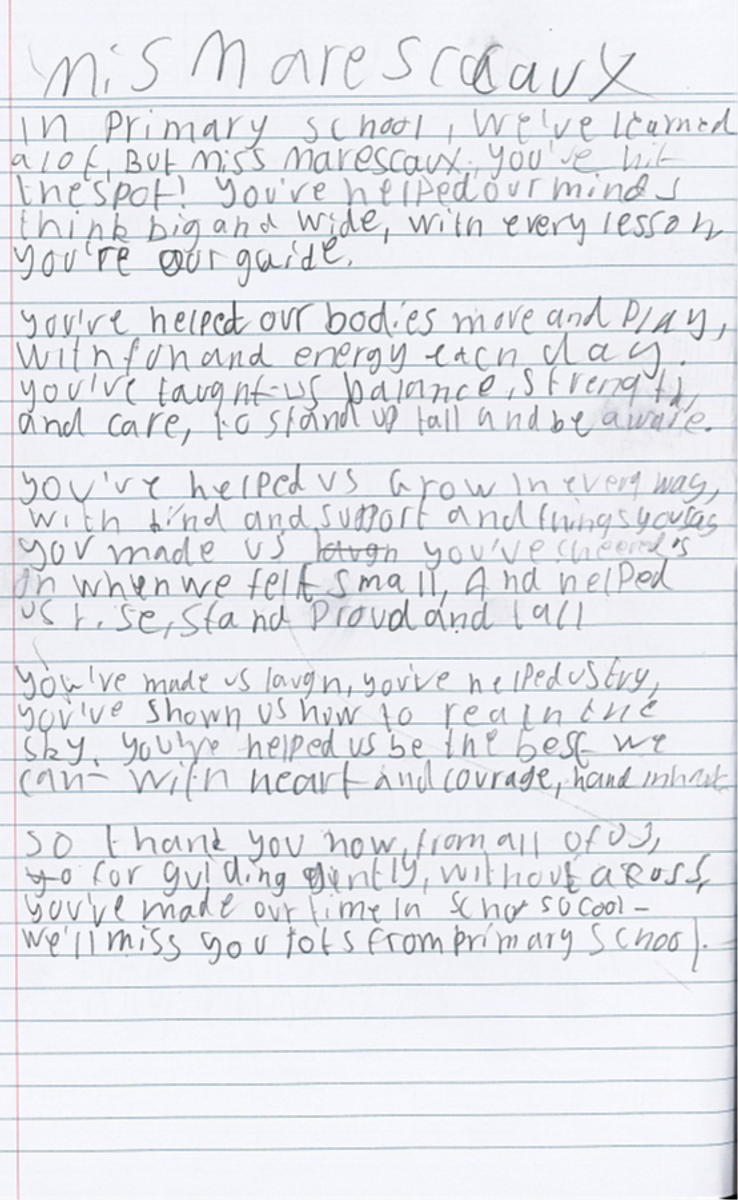 Mis Marescaux
In Primary school, We've learned
a lot, But Miss Marescaux, you've hit
the spot! You've helped our minds
think big and wide, with every lesson
you're our guide.
you've helped our bodies move and play,
with fun and energy each day.
you've taught us balance, strength,
and care, to stand up tall and be aware.
you've helped us Grow in every way,
with kind and support and things you say
you made us laugh you've cheered us
on when we felt small, And helped
us rise, stand Proud and tall
you've made us laugh, you've helped us try,
you've shown us how to reach the
sky. you've helped us be the best we
can- with heart and courage, hand in
so thank you now, from all of us,
for guiding gently, without a fuss,
you've made our time in so cool-
we'll miss you lots from primary school.